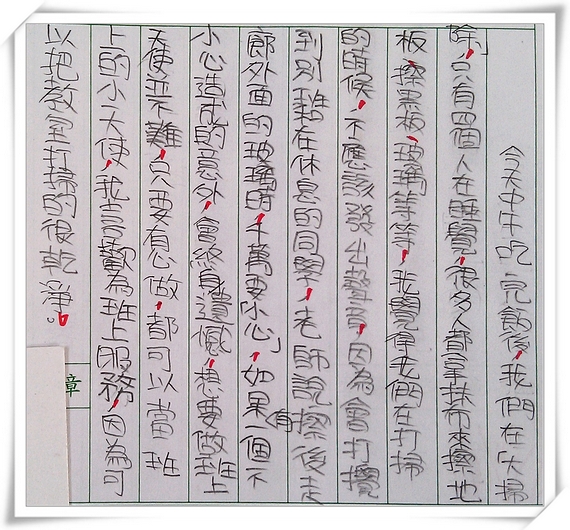 今天中午吃完飯後,我們在「大掃
除」,只有四個人在睡覺,很多人都拿抹布來擦地
板、擦黑板、玻璃等等,我覺得我們在打掃
的時候,不應該發出聲音,因為會打擾
到別班在休息的同學,老師說擦後走
廊外面的玻璃時,千萬要「小心」,如果有一個不
小心造成的意外,會終身遺憾,想要做班上
天使並不難,只要有心做,都可以當班
上的小天使,我喜歡為班上服務,因為可
以把教室打掃的很乾淨。
章